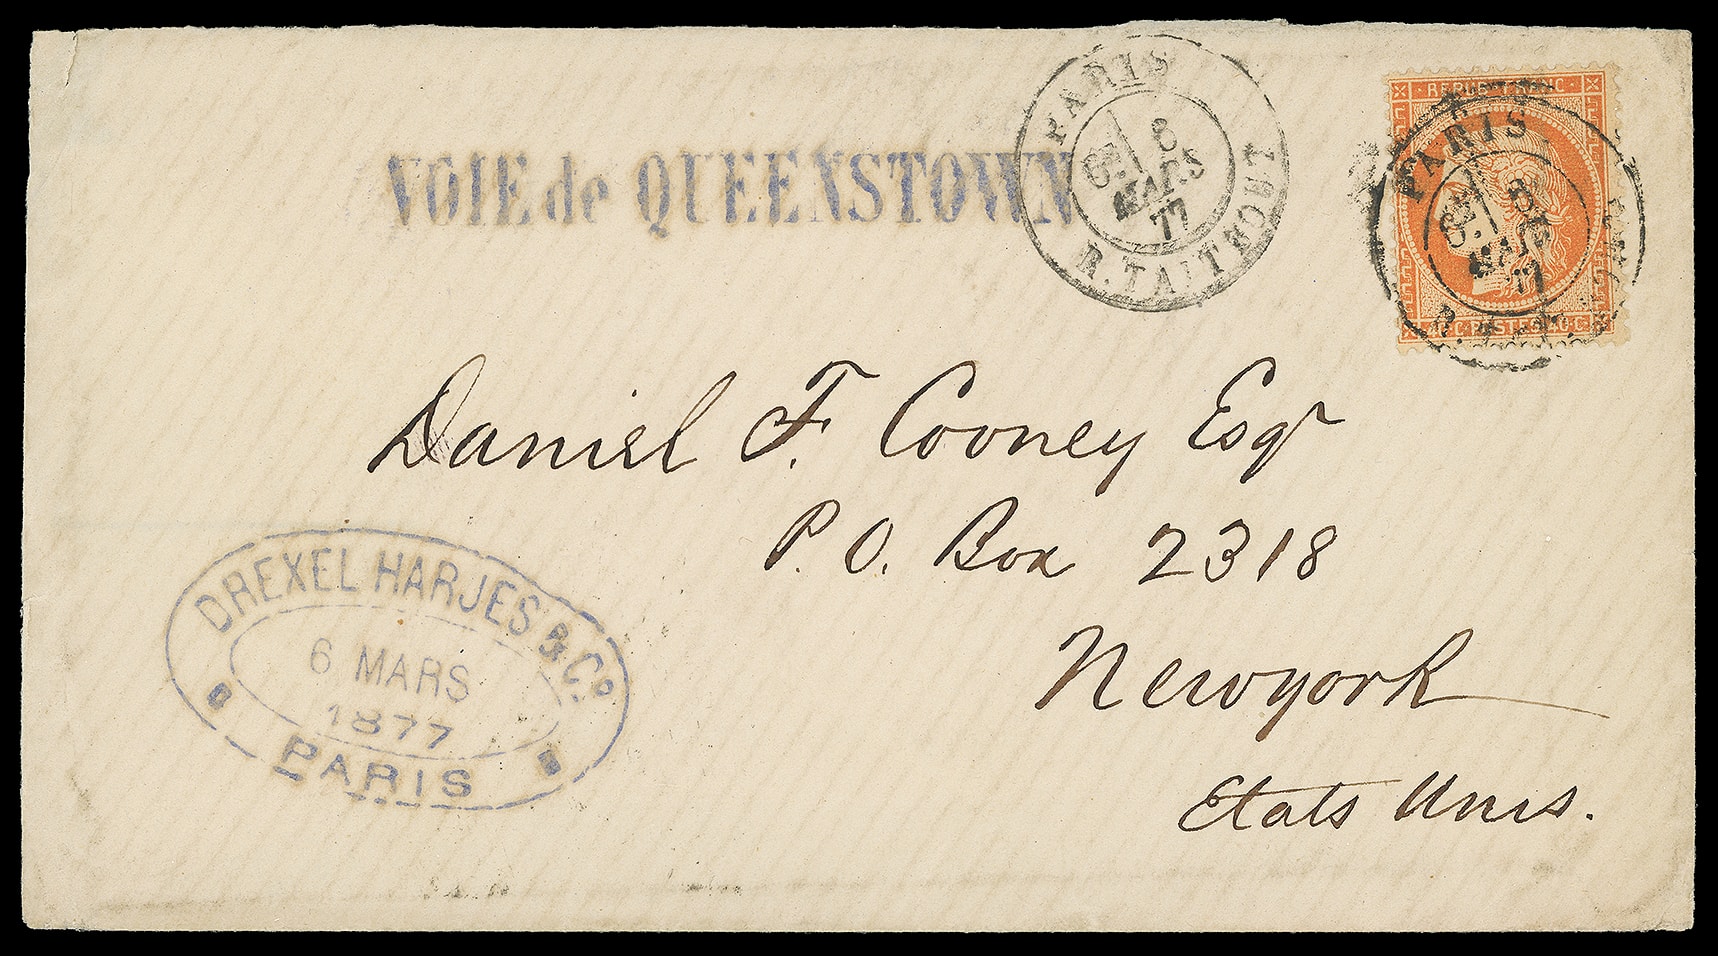 VOIE de QUEENSTOWN
PARIS
6E 8
MARS
77
R. TAITBOUT
REPUB FRANC
PARIS
6E 8
MARS
77
40 C POSTES 40 C
Daniel F. Cooney Esqr
P.O. Box 2318
Newyork
Etats Unis.
DREXEL HARJES & Co.
6 MARS
1877
PARIS